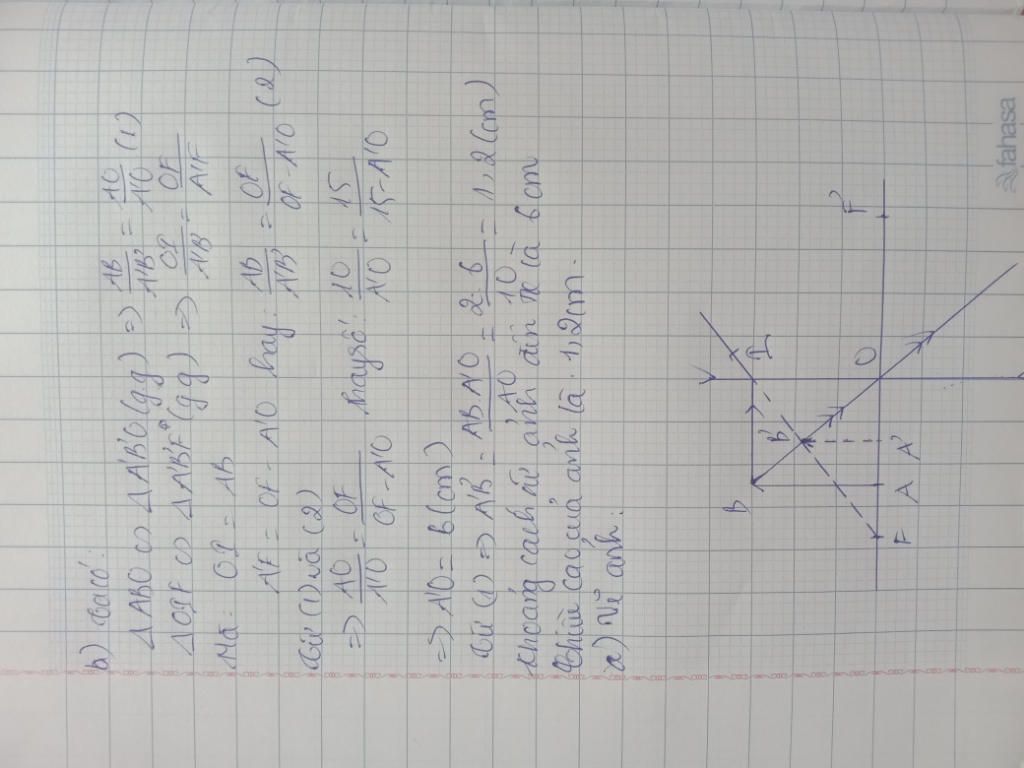 b) Ta có:
Δ ABO ∽ Δ A'B'O (g.g) => AB/A'B' = AO/A'O (1)
Δ OIF ∽ Δ A'B'F (g.g) => OI/A'B' = OF/A'F
Mà: OI = AB
A'F = OF - A'O hay: AB/A'B' = OF/OF - A'O (2)
Từ (1) và (2)
=> AO/A'O = OF/OF - A'O thay số: 10/A'O = 15/15 - A'O
=> A'O = 6 (cm)
Từ (1) => A'B' = AB.A'O/AO = 2.6/10 = 1,2 (cm)
Khoảng cách từ ảnh đến TK là 6 cm
Chiều cao của ảnh là 1,2cm.
a) Vẽ ảnh:
B I
B'
F A A' O F'
fahasa